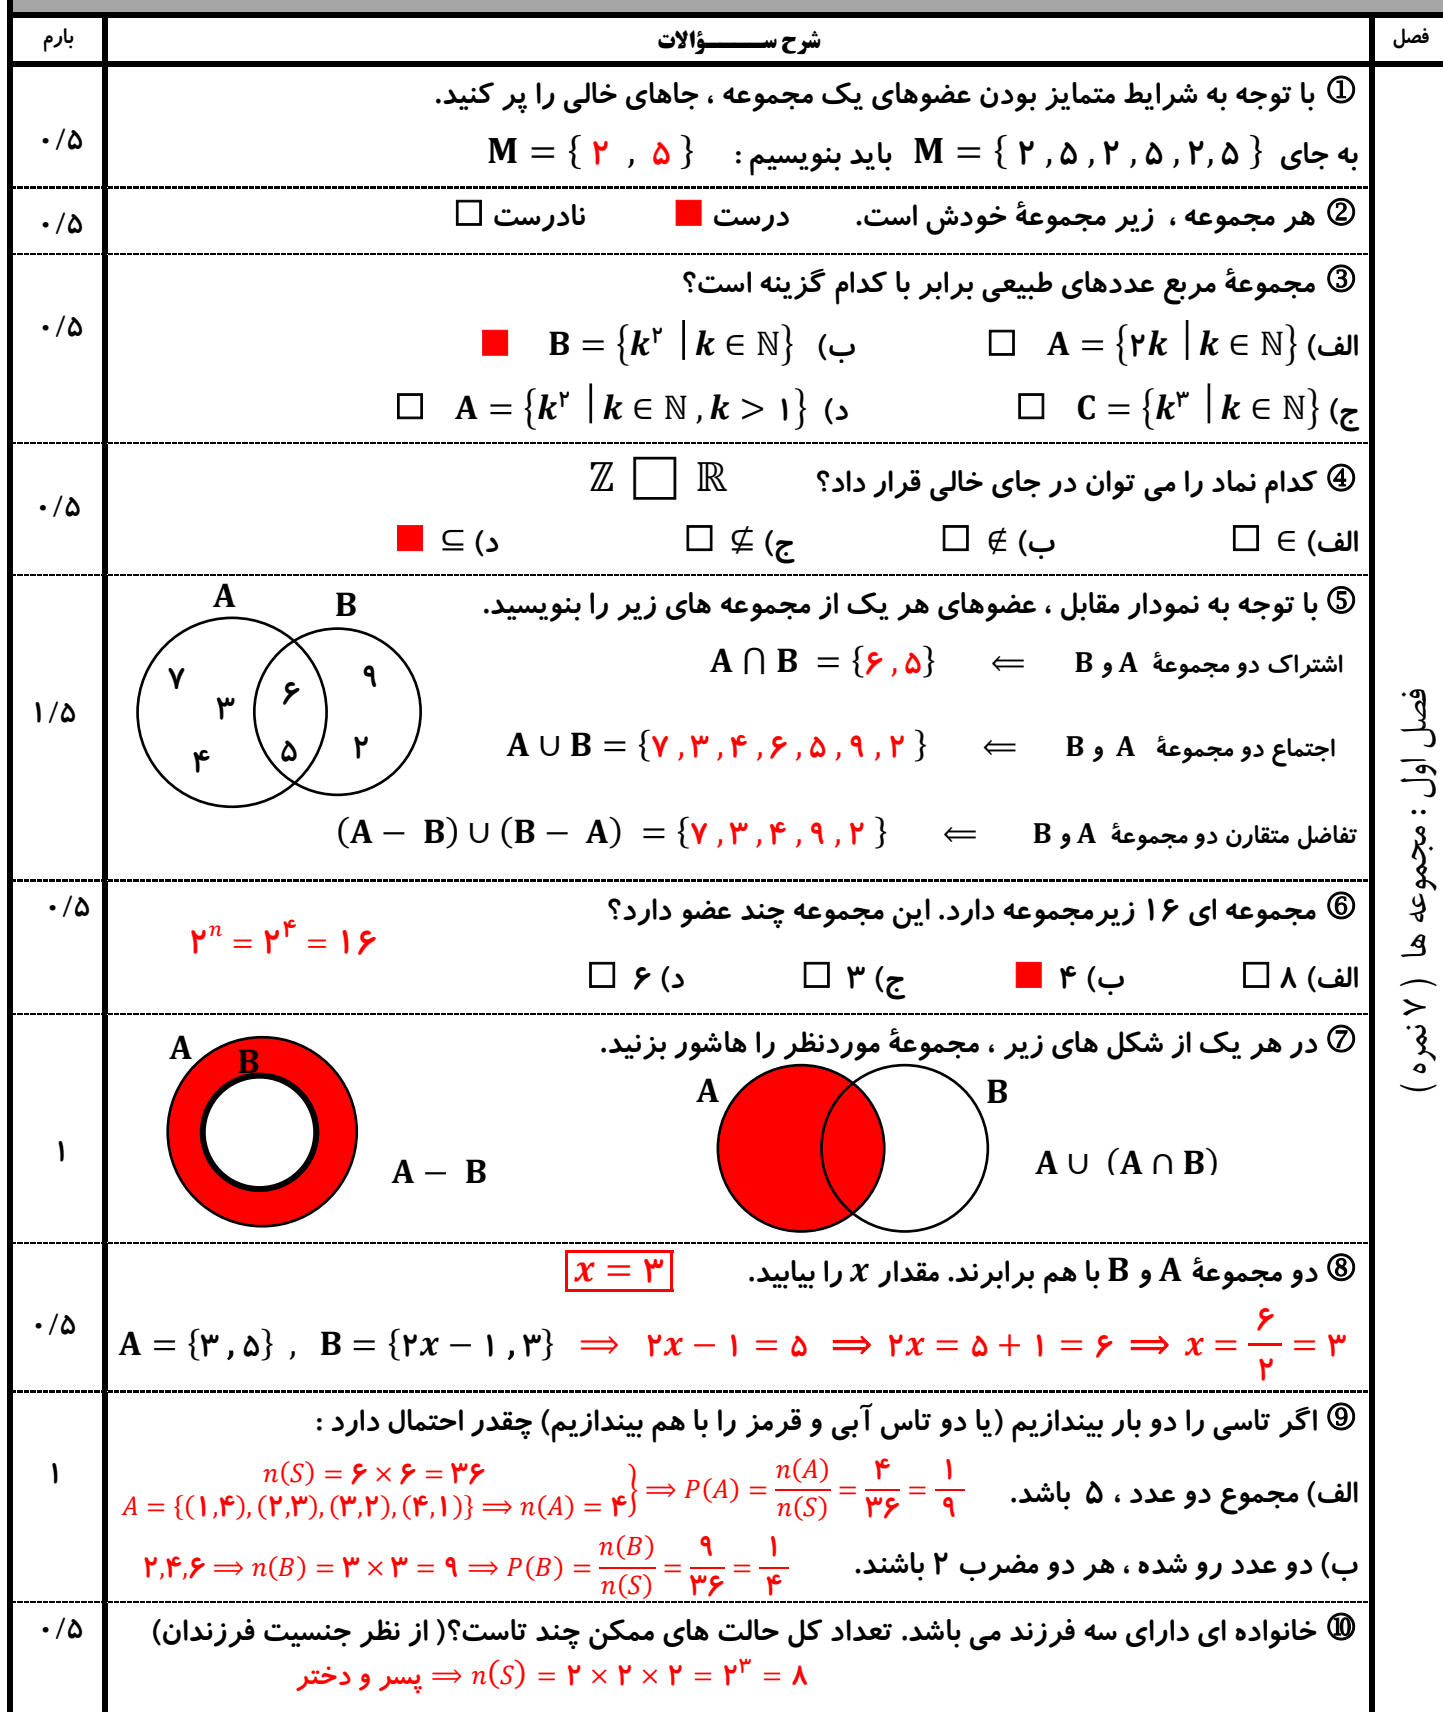 فصل شرح ســــــؤالات بارم
فصل اول : مجموعه ها ( ۷ نمره )
① با توجه به شرایط متمایز بودن عضوهای یک مجموعه ، جاهای خالی را پر کنید.
۰/۵
به جای M = { ۲ , ۵ , ۲ , ۵ , ۲, ۵ } باید بنویسیم : M = { ۲ , ۵ }
② هر مجموعه ، زیر مجموعهٔ خودش است. درست ■ نادرست □
۰/۵
③ مجموعهٔ مربع عددهای طبیعی برابر با کدام گزینه است؟
۰/۵
الف) A = {۲k | k ∈ ℕ} □ ب) B = {k^۲ | k ∈ ℕ} ■
ج) C = {k^۳ | k ∈ ℕ} □ د) A = {k^۲ | k ∈ ℕ , k > ۱} □
④ کدام نماد را می توان در جای خالی قرار داد؟ ℤ □ ℝ
۰/۵
الف) ∈ □ ب) ∉ □ ج) ⊈ □ د) ⊆ ■
⑤ با توجه به نمودار مقابل ، عضوهای هر یک از مجموعه های زیر را بنویسید.
۱/۵
اشتراک دو مجموعهٔ A و B ⟸ A ∩ B = {۶ , ۵}
اجتماع دو مجموعهٔ A و B ⟸ A ∪ B = {۷ , ۳ , ۴ , ۶ , ۵ , ۹ , ۲ }
تفاضل متقارن دو مجموعهٔ A و B ⟸ (A − B) ∪ (B − A) = {۷ , ۳ , ۴ , ۹ , ۲ }
A B
۷ ۳ ۴ ۶ ۵ ۹ ۲
⑥ مجموعه ای ۱۶ زیرمجموعه دارد. این مجموعه چند عضو دارد؟
۰/۵
۲^n = ۲^۴ = ۱۶
الف) ۸ □ ب) ۴ ■ ج) ۳ □ د) ۶ □
⑦ در هر یک از شکل های زیر ، مجموعهٔ موردنظر را هاشور بزنید.
۱
A B A ∪ (A ∩ B)
A B A − B
⑧ دو مجموعهٔ A و B با هم برابرند. مقدار x را بیابید. x = ۳
۰/۵
A = {۳ , ۵} , B = {۲x − ۱ , ۳} ⟹ ۲x − ۱ = ۵ ⟹ ۲x = ۵ + ۱ = ۶ ⟹ x = ۶/۲ = ۳
⑨ اگر تاسی را دو بار بیندازیم (یا دو تاس آبی و قرمز را با هم بیندازیم) چقدر احتمال دارد :
۱
الف) مجموع دو عدد ، ۵ باشد.
n(S) = ۶ × ۶ = ۳۶
A = {(۱,۴), (۲,۳), (۳,۲), (۴,۱)} ⟹ n(A) = ۴} ⟹ P(A) = n(A)/n(S) = ۴/۳۶ = ۱/۹
ب) دو عدد رو شده ، هر دو مضرب ۲ باشند. ۲,۴,۶ ⟹ n(B) = ۳ × ۳ = ۹ ⟹ P(B) = n(B)/n(S) = ۹/۳۶ = ۱/۴
⑩ خانواده ای دارای سه فرزند می باشد. تعداد کل حالت های ممکن چند تاست؟( از نظر جنسیت فرزندان)
۰/۵
پسر و دختر ⟹ n(S) = ۲ × ۲ × ۲ = ۲^۳ = ۸